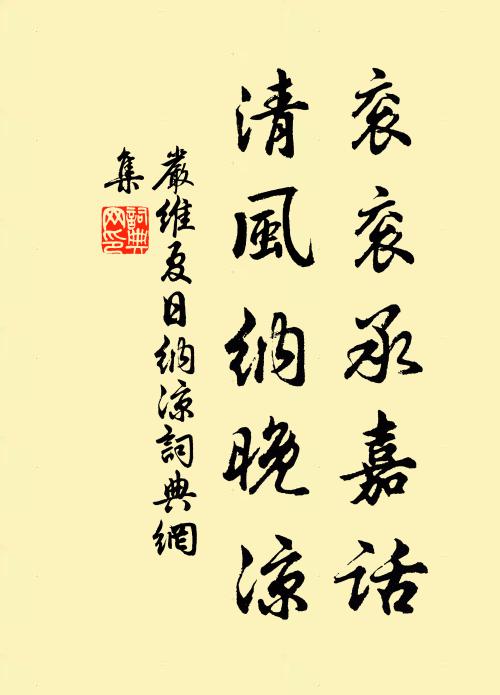 衮衮承嘉话
清風纳晚凉
嚴維夏日纳凉詞典網
集
詞典網印